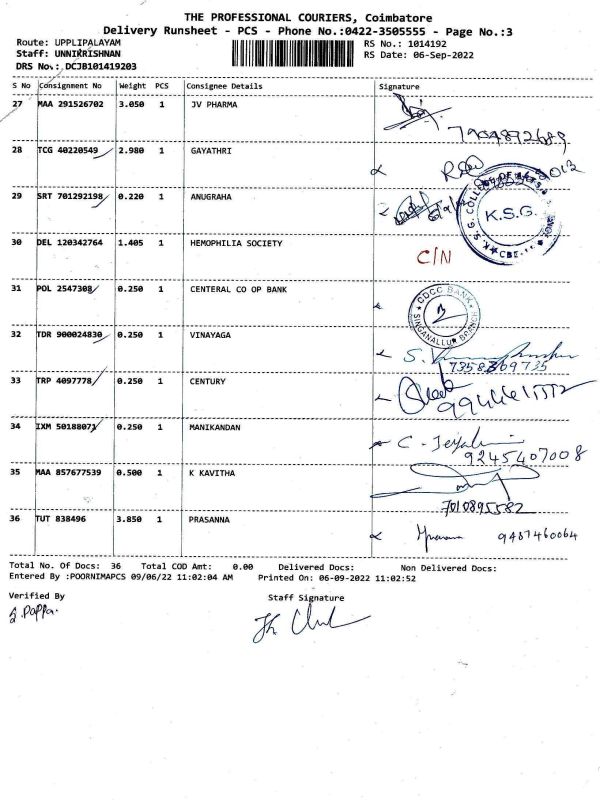 THE PROFESSIONAL COURIERS, Coimbatore
Delivery Runsheet - PCS - Phone No.:0422-3505555 - Page No.:3
Route: UPPLIPALAYAM
RS No.: 1014192
Staff: UNNIKRISHNAN
RS Date: 06-Sep-2022
DRS No.: DCJB101419203
S No Consignment No Weight PCS Consignee Details Signature
27 MAA 291526702 3.050 1 JV PHARMA
7904892689
28 TCG 40220549 2.980 1 GAYATHRI
29 SRT 701292198 0.220 1 ANUGRAHA
K.S.G.
30 DEL 120342764 1.405 1 HEMOPHILIA SOCIETY C/N
31 POL 2547308 0.250 1 CENTERAL CO OP BANK
CDCC BANK
SINGANALLUR BRANCH
32 TDR 900024830 0.250 1 VINAYAGA
33 TRP 4097778 0.250 1 CENTURY
34 IXM 50188071 0.250 1 MANIKANDAN
9245407008
35 MAA 857677539 0.500 1 K KAVITHA
7010895582
36 TUT 838496 3.850 1 PRASANNA
9487460064
Total No. Of Docs: 36 Total COD Amt: 0.00 Delivered Docs: Non Delivered Docs:
Entered By :POORNIMAPCS 09/06/22 11:02:04 AM Printed On: 06-09-2022 11:02:52
Verified By Staff Signature